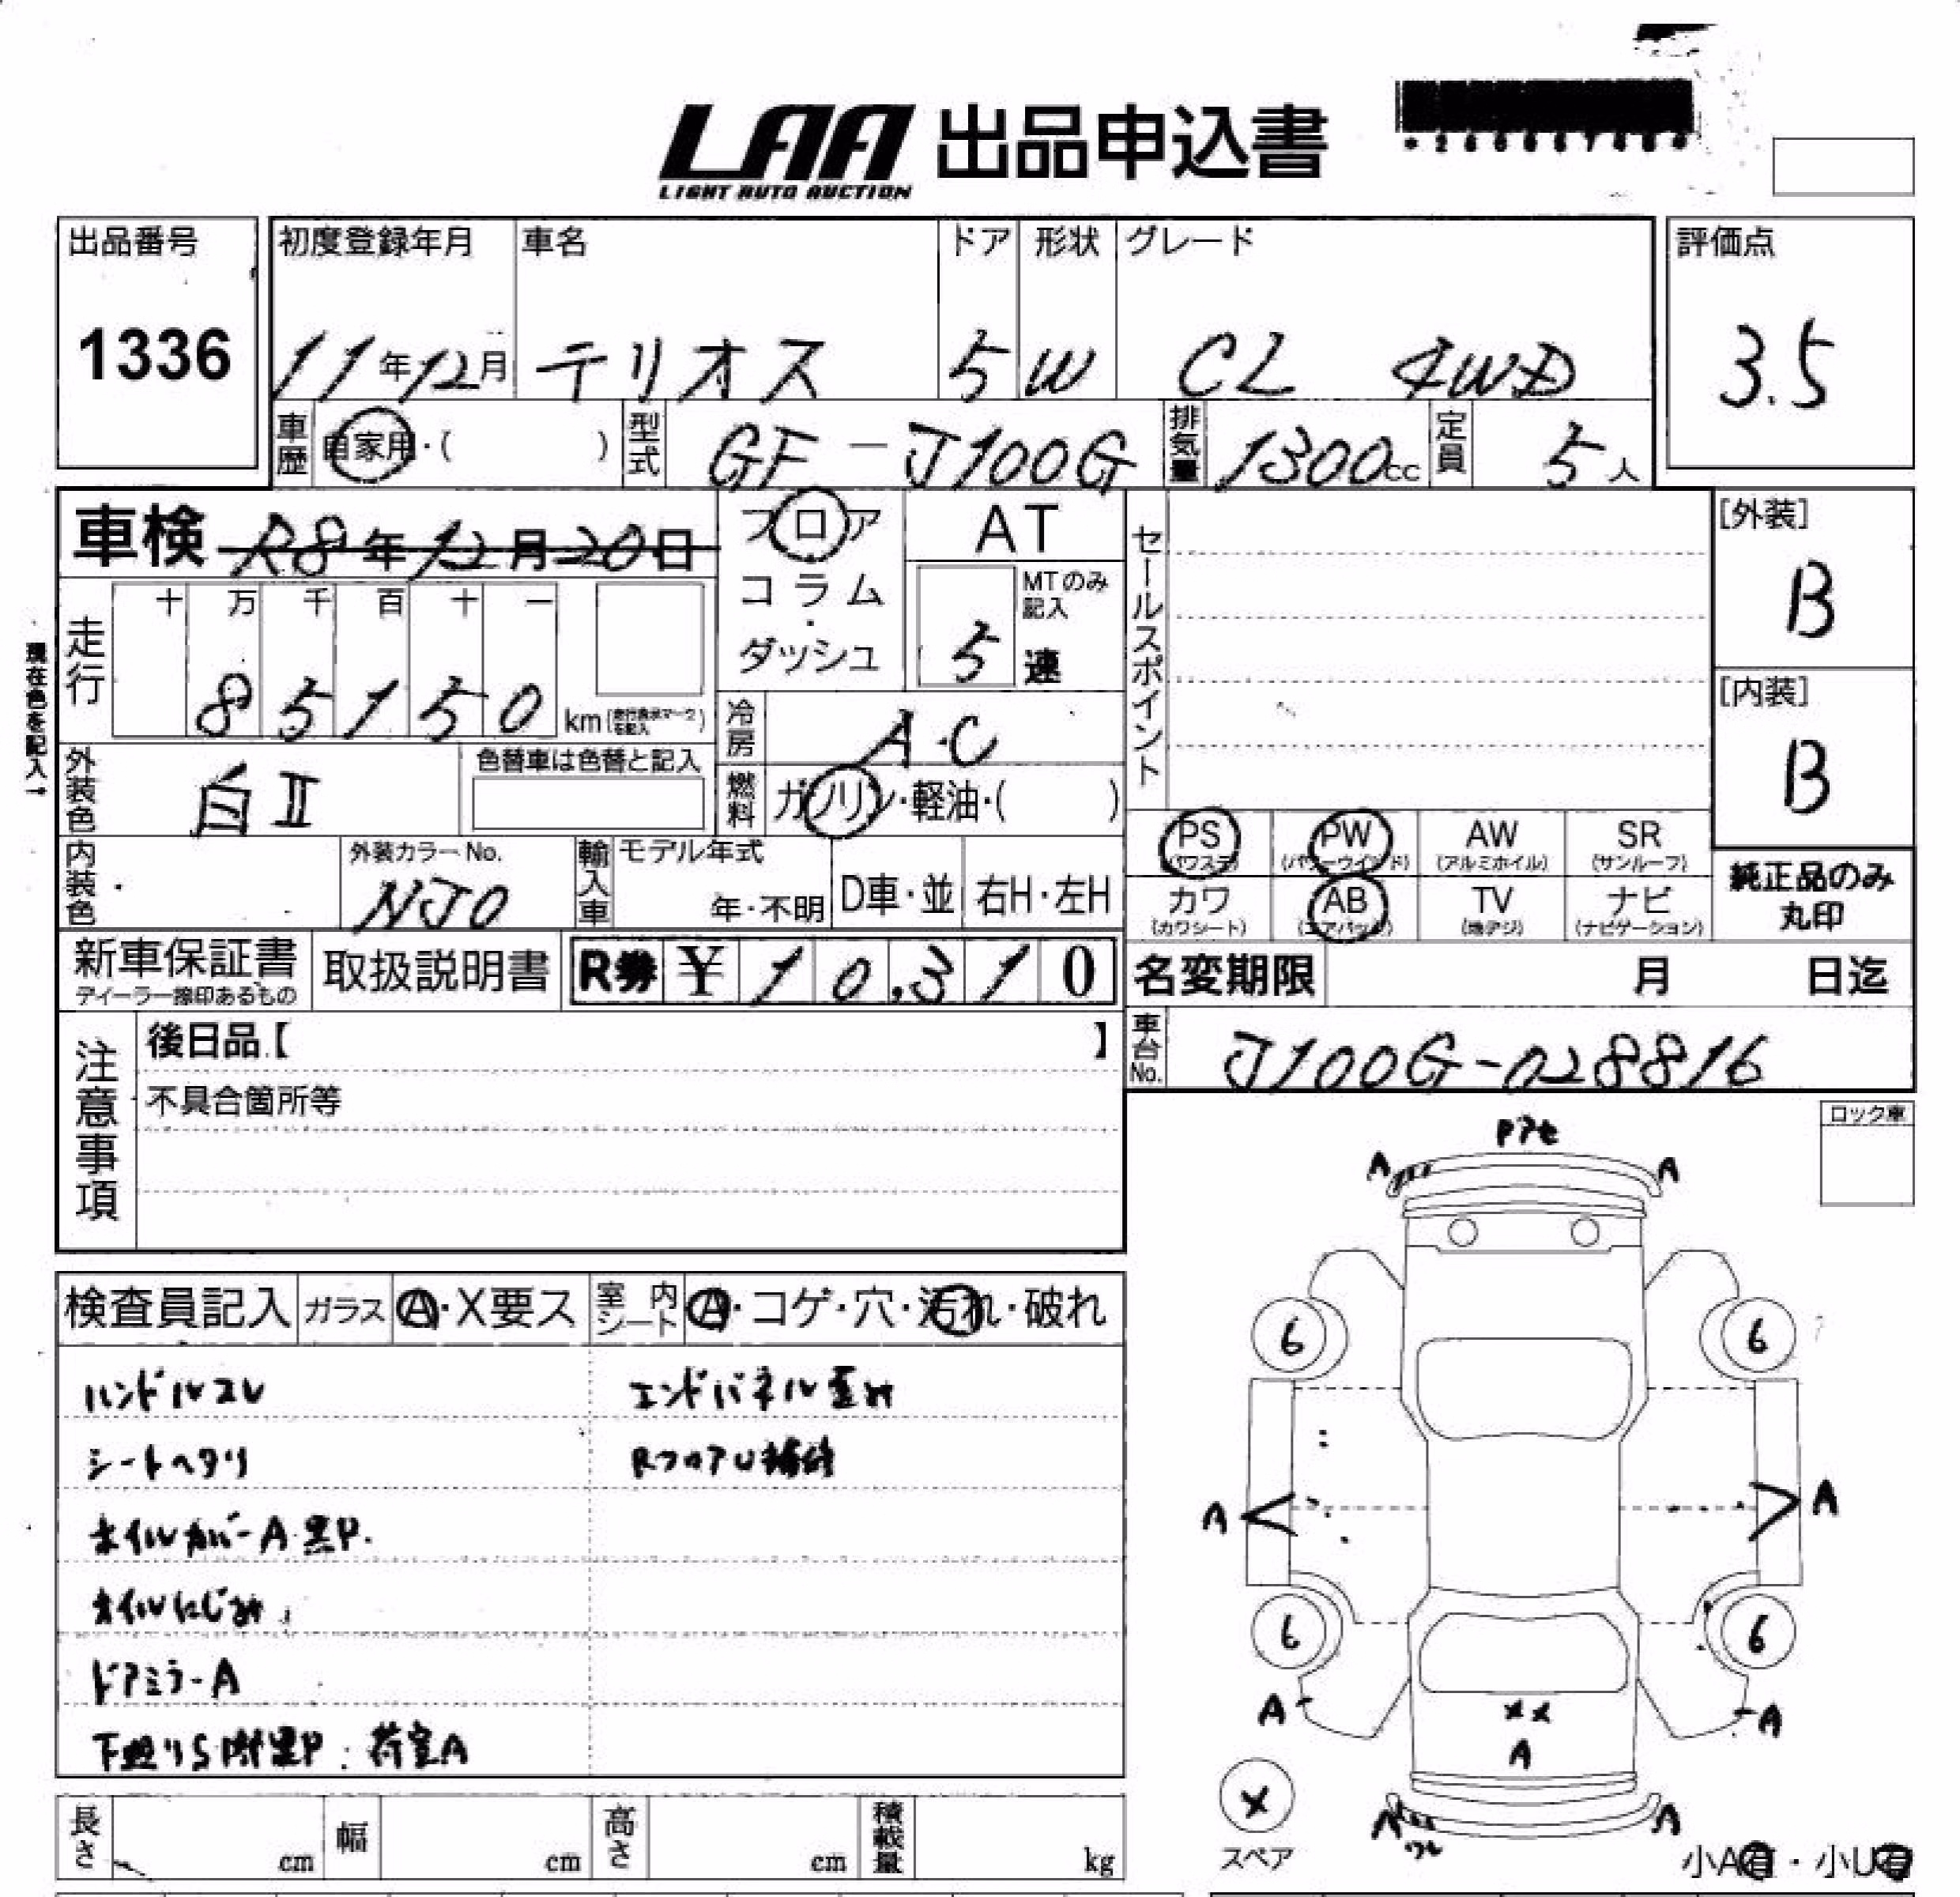 LAA 出品申込書
LIGHT AUTO AUCTION
出品番号
1336
初度登録年月
11年12月
車名
テリオス
ドア
5
形状
W
グレード
CL 4WD
評価点
3.5
車歴 自家用・( )
型式 GF-J100G
排気量 1300cc
定員 5人
車検 R8年12月20日
フロア
コラム
・
ダッシュ
AT
MTのみ記入
5 速
セールスポイント
[外装]
B
[内装]
B
現在色を記入↑
走行
十 万 千 百 十 一
85150 km
外装色 白II
色替車は色替と記入
冷房 A・C
燃料 ガソリン・軽油・( )
内装色
外装カラーNo.
NJ0
輸入車
モデル年式
年・不明
D車・並
右H・左H
PS (パワステ)
PW (パワーウインド)
AW (アルミホイル)
SR (サンルーフ)
カワ (カワシート)
AB (エアバッグ)
TV (地デジ)
ナビ (ナビゲーション)
純正品のみ
丸印
新車保証書
ディーラー捺印あるもの
取扱説明書
R券 ¥10,310
名変期限 月 日迄
車台No. J100G-028816
注意事項
後日品【 】
不具合箇所等
ロック車
Pアセ
A A
6 6
A A
6 6
A A
XX
A
A A
ワレ
X
スペア
小A有・小U有
検査員記入 ガラス A・X要ス 室内シート A・コゲ・穴・汚れ・破れ
ハンドルスレ
シートヘタリ
ホイルカバーA 黒P.
オイルにじみ.
ドアミラーA
下廻りS附黒P. 荷室A
エンドパネル歪み
RフロアU補修
長さ cm
幅 cm
高さ cm
積載量 kg